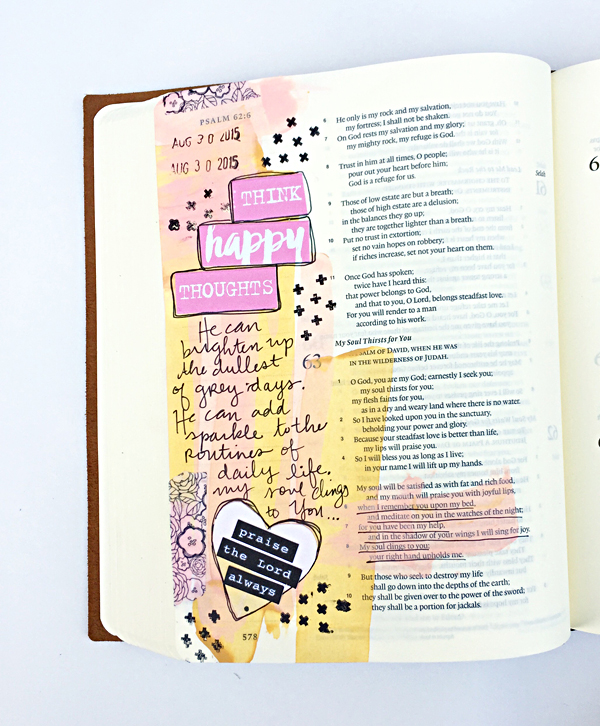 PSALM 62:6
AUG 30 2015
AUG 30 2015
THINK
happy
THOUGHTS
He can
brighten up
the dullest
of grey days.
He can add
sparkle to the
routines of
daily life.
my soul clings
to You...
praise
the Lord
always
578
6 He only is my rock and my salvation,
my fortress; I shall not be shaken.
7 On God rests my salvation and my glory;
my mighty rock, my refuge is God.
8 Trust in him at all times, O people;
pour out your heart before him;
God is a refuge for us. Selah
9 Those of low estate are but a breath;
those of high estate are a delusion;
in the balances they go up;
they are together lighter than a breath.
10 Put no trust in extortion;
set no vain hopes on robbery;
if riches increase, set not your heart on them.
11 Once God has spoken;
twice have I heard this:
that power belongs to God,
and that to you, O Lord, belongs steadfast love.
For you will render to a man
according to his work.
My Soul Thirsts for You
63 PSALM OF DAVID, WHEN HE WAS
IN THE WILDERNESS OF JUDAH.
1 O God, you are my God; earnestly I seek you;
my soul thirsts for you;
my flesh faints for you,
as in a dry and weary land where there is no water.
2 So I have looked upon you in the sanctuary,
beholding your power and glory.
3 Because your steadfast love is better than life,
my lips will praise you.
4 So I will bless you as long as I live;
in your name I will lift up my hands.
My soul will be satisfied as with fat and rich food,
and my mouth will praise you with joyful lips,
6 when I remember you upon my bed,
and meditate on you in the watches of the night;
7 for you have been my help,
and in the shadow of your wings I will sing for joy.
8 My soul clings to you;
your right hand upholds me.
9 But those who seek to destroy my life
shall go down into the depths of the earth;
10 they shall be given over to the power of the sword;
they shall be a portion for jackals.
6